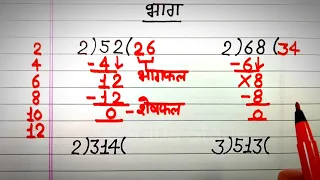 भाग
2 2)52(26 2)68(34
4 -4↓ -6↓
6 12 भागफल ×8
8 -12 -8
10 0 -शेषफल 0
12
2)314( 3)513(